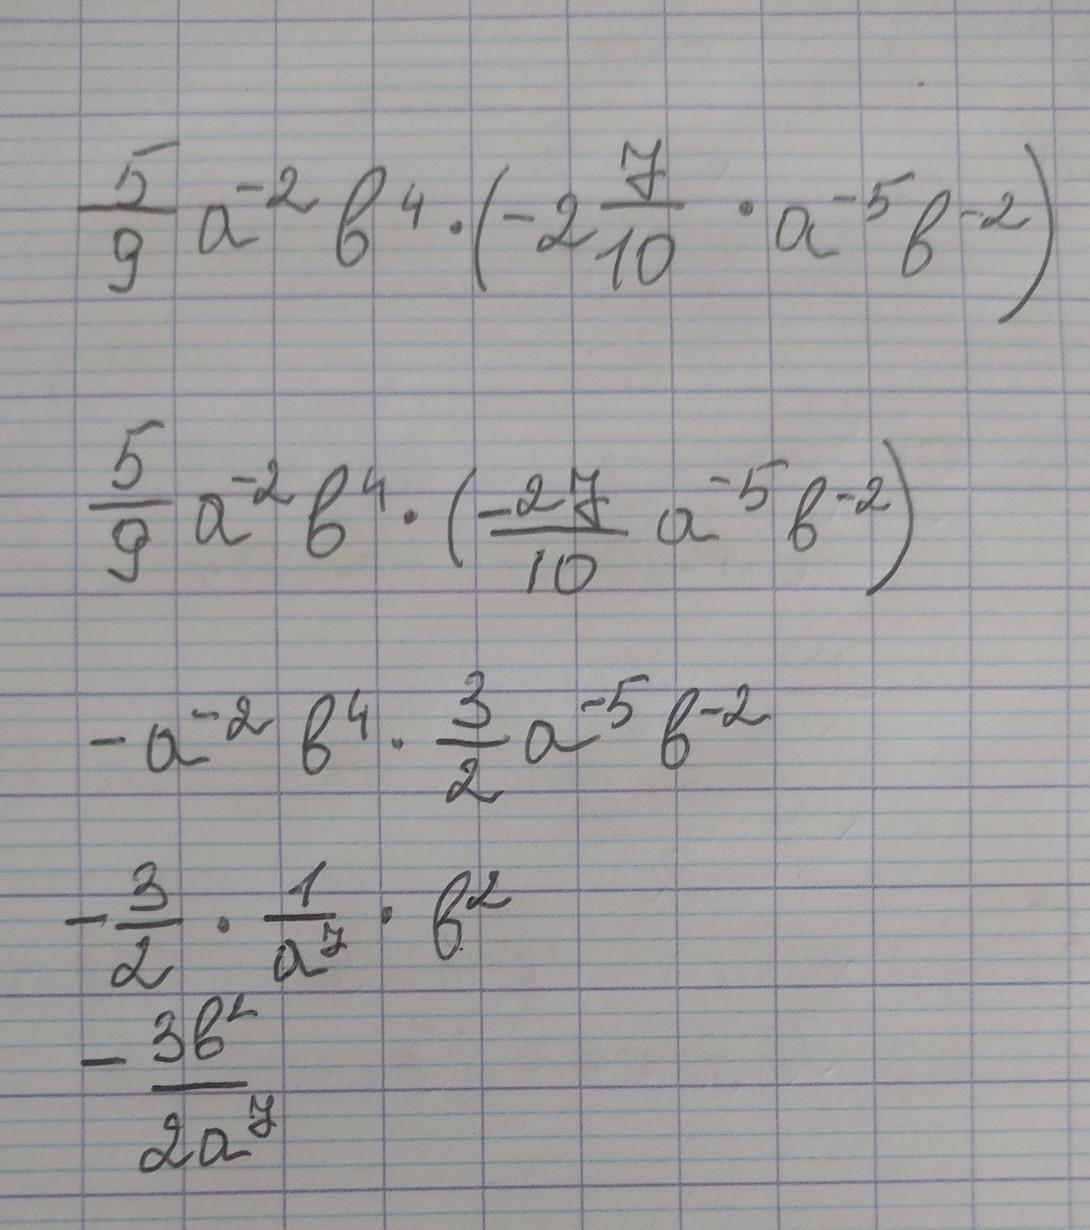 5/9 a⁻² b⁴ · (-2 7/10 · a⁻⁵ b⁻²)
5/9 a⁻² b⁴ · (-27/10 a⁻⁵ b⁻²)
- a⁻² b⁴ · 3/2 a⁻⁵ b⁻²
- 3/2 · 1/a⁷ · b²
- 3b²/2a⁷